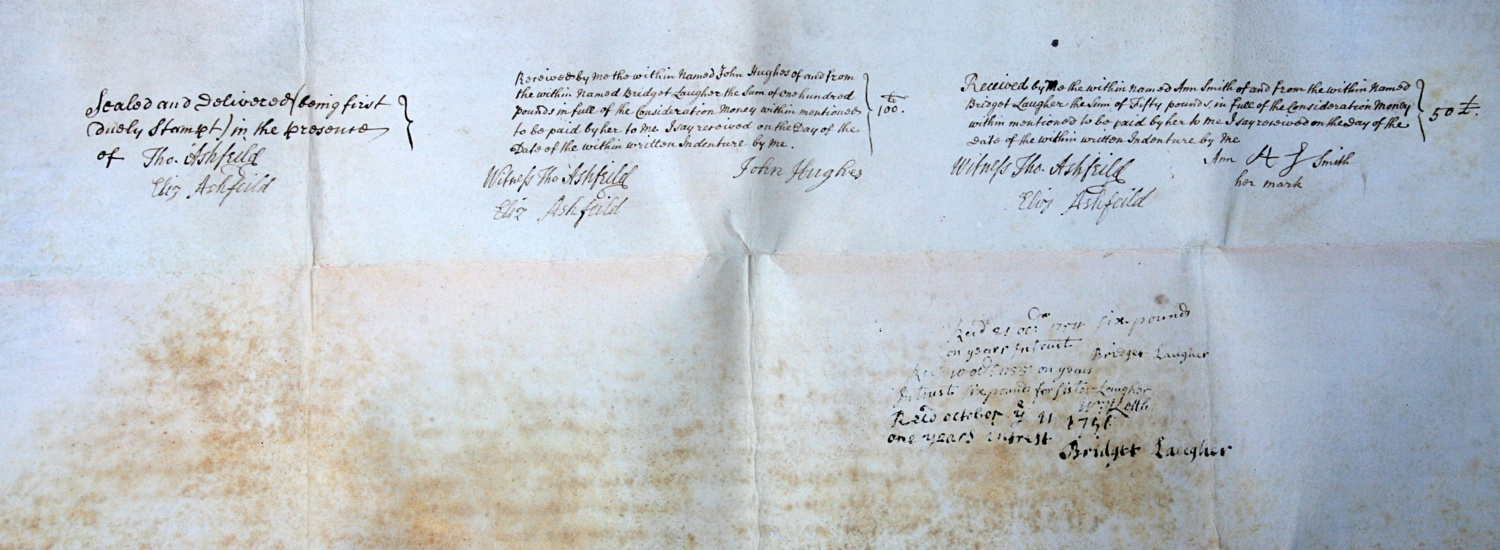 Sealed and Delivered (being first
duely Stampt) in the presence
of Tho. Ashfeild
Eliz Ashfeild
Received by Me the within Named John Hughes of and from
the within Named Bridget Laugher the Sum of One hundred
pounds in full of the Consideration Money within mentioned
to be paid by her to Me I say received on the Day of the
Date of the within written Indenture by Me.
100.
John Hughes
Witness Tho Ashfeild
Eliz Ashfeild
Received by Me the within Named Ann Smith of and from the within Named
Bridget Laugher the Sum of Fifty pounds in full of the Consideration Money
within mentioned to be paid by her to Me I say received on the Day of the
Date of the within written Indenture by Me
50
Ann A S Smith
her mark
Witness Tho. Ashfeild
Eliz Ashfeild
six pounds
on years Intrust
Bridget Laugher
on years
Intrust six pounds for sister Laugher
Recd october ye 11 1756
one years intrest
Bridget Laugher